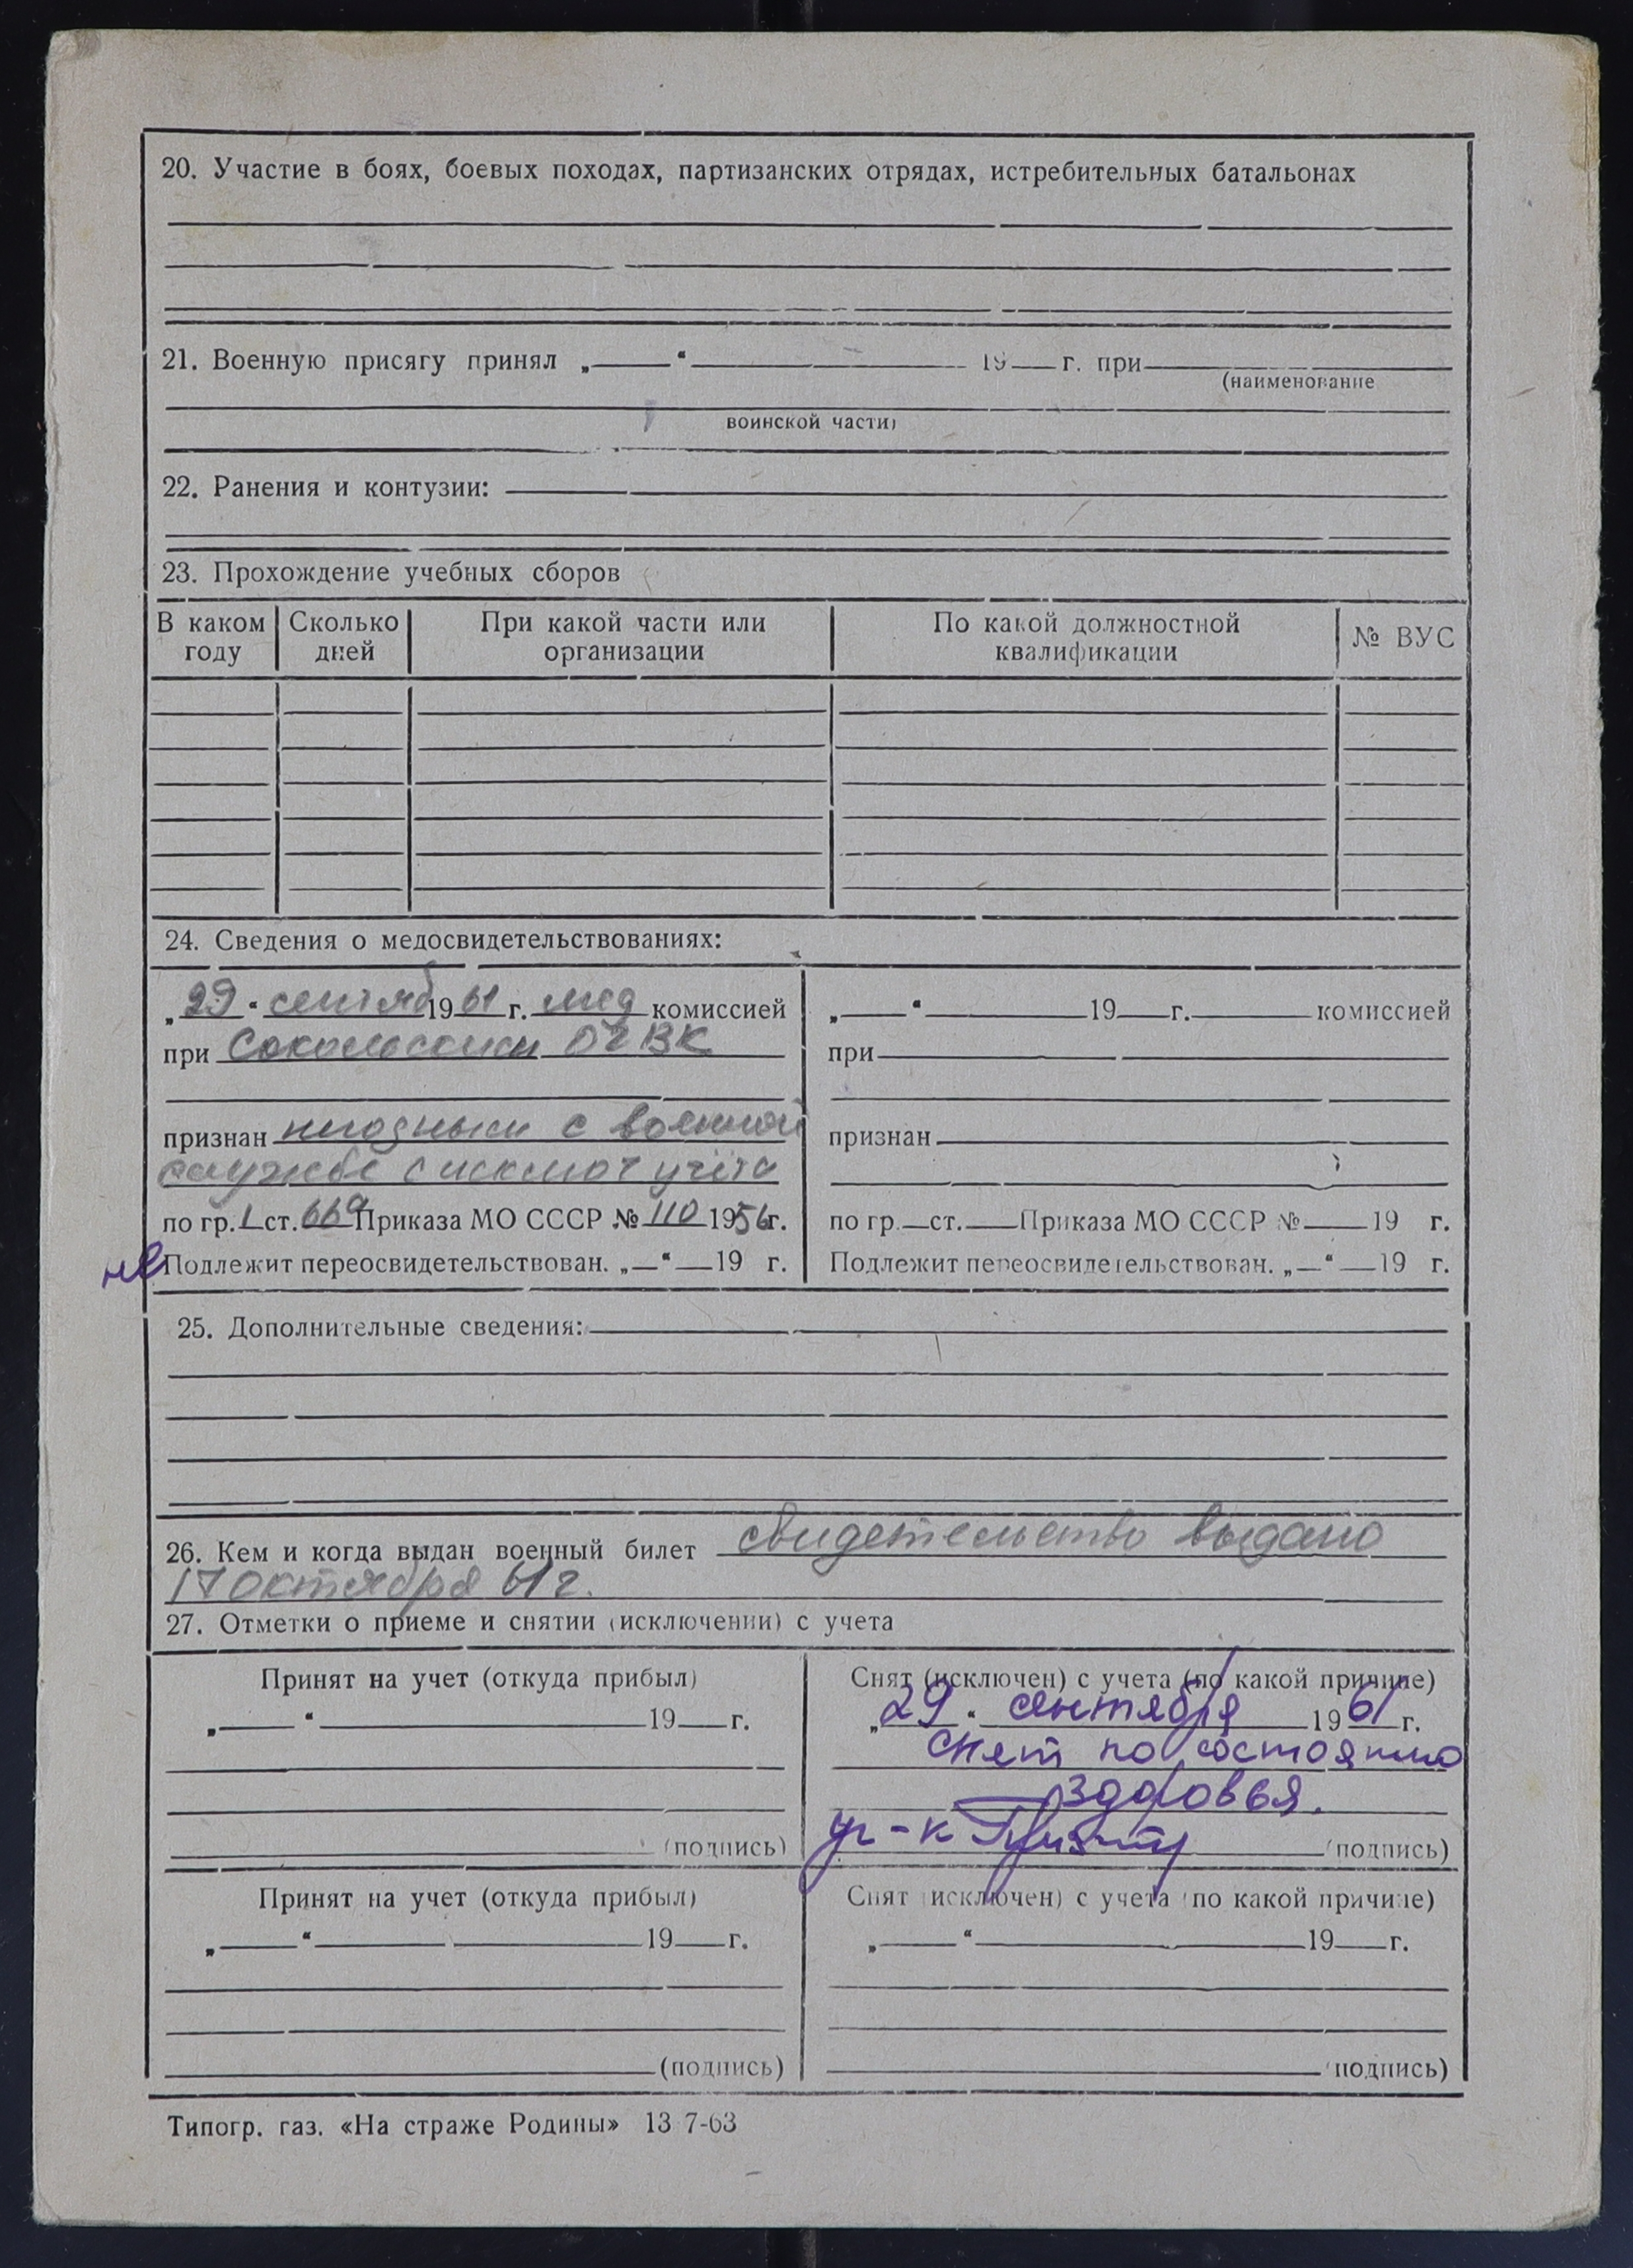 20. Участие в боях, боевых походах, партизанских отрядах, истребительных батальонах
21. Военную присягу принял „ “ 19 г. при
(наименование
воинской части)
22. Ранения и контузии:
23. Прохождение учебных сборов
В каком году Сколько дней При какой части или организации По какой должностной квалификации № ВУС
24. Сведения о медосвидетельствованиях:
„29“ сентяб 1961 г. мед комиссией
при Сокольским ОГВК
признан негодным с военной
службе с искл от учёта
по гр. I ст. 66а Приказа МО СССР № 110 1956г.
не Подлежит переосвидетельствован. „ “ 19 г.
„ “ 19 г. комиссией
при
признан
по гр. ст. Приказа МО СССР № 19 г.
Подлежит переосвидетельствован. „ “ 19 г.
25. Дополнительные сведения:
26. Кем и когда выдан военный билет свидетельство выдано
17 октября 61 г.
27. Отметки о приеме и снятии (исключении) с учета
Принят на учет (откуда прибыл)
„ “ 19 г.
(подпись)
Снят (исключен) с учета (по какой причине)
„29“ сентября 1961 г.
снят по состоянию
здоровья.
(подпись)
Принят на учет (откуда прибыл)
„ “ 19 г.
(подпись)
Снят (исключен) с учета (по какой причине)
„ “ 19 г.
(подпись)
Типогр. газ. «На страже Родины» 13 7-63